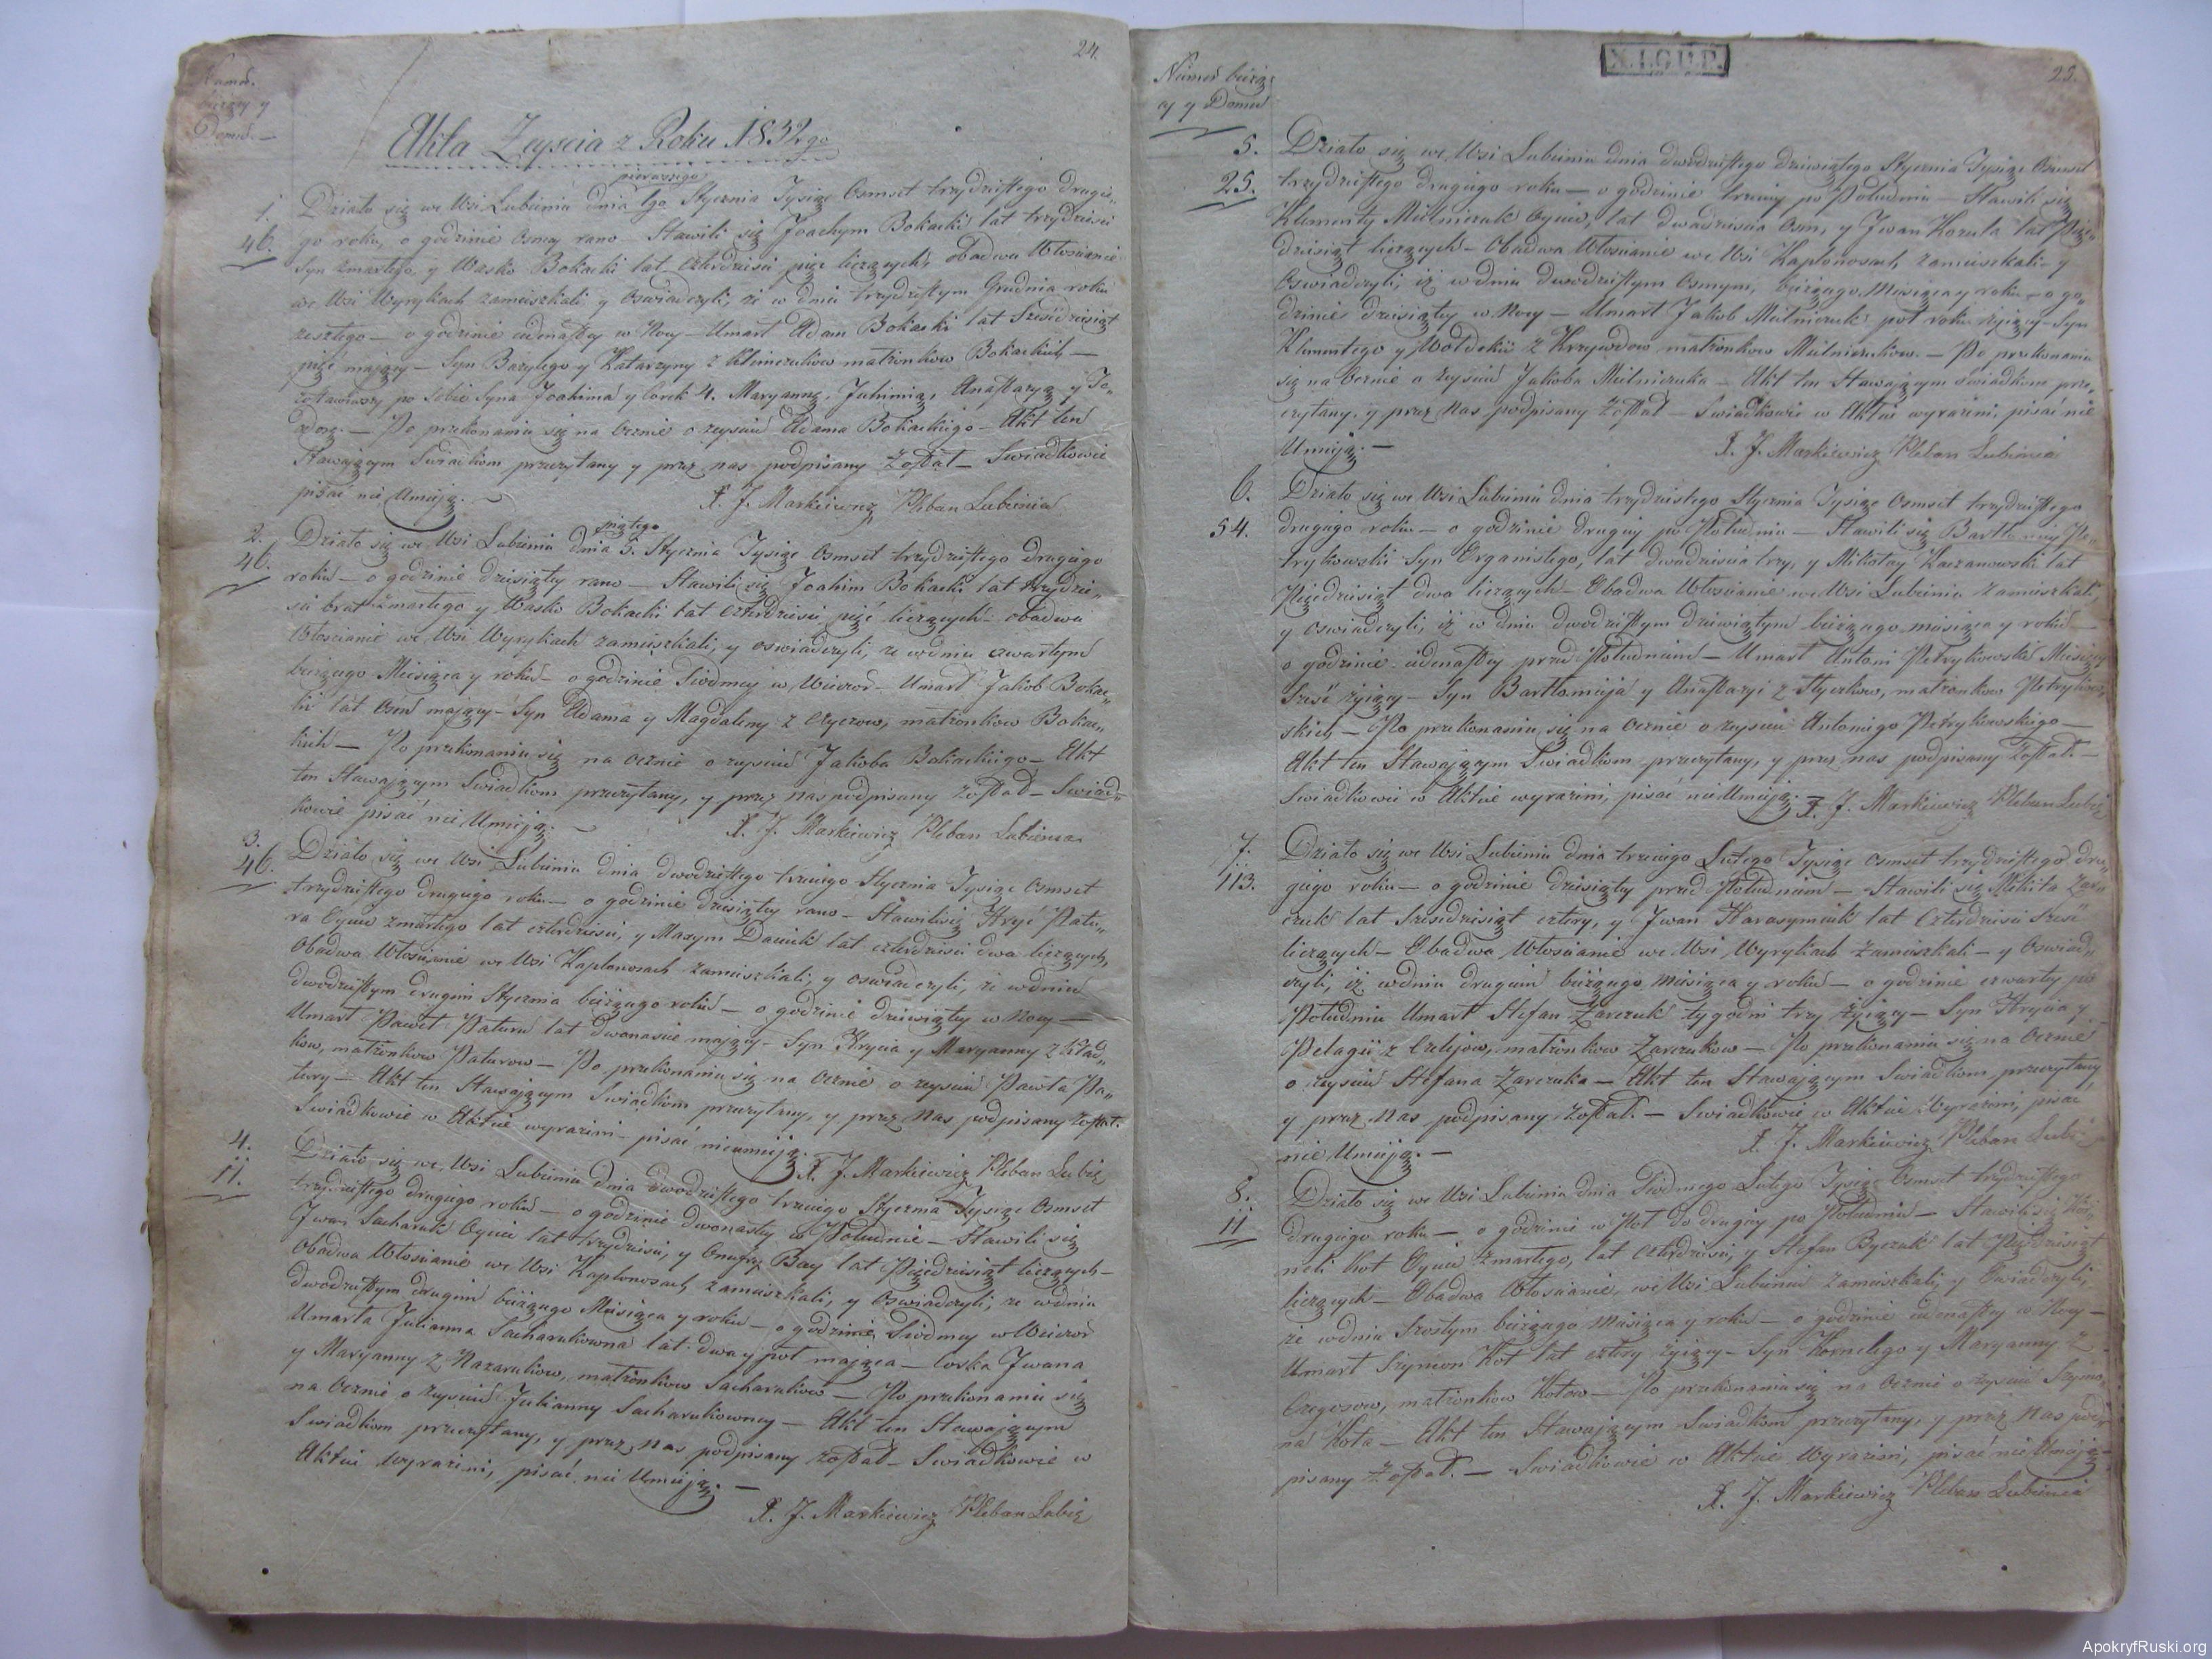 24.
Numer
bieżący y
Domu. —
Akta Zeyscia z Roku 1832go
pierwszego
1.
46.
Działo się we Wsi Lubieniu dnia 1go Stycznia Tysiąc Osmset trzydziestego drugie„
go roku, o godzinie Osmey rano — Stawili się Joachym Bokacki lat trzydzieści
Syn zmarłego y Wasko Bokacki lat czterdzieści pięć liczących, obadwa Włościanie
we Wsi Wyrykach zamieszkali y oswiadczyli, że w dniu trzydziestym Grudnia roku
zeszłego — o godzinie iedenastey w Nocy — Umarł Adam Bokacki lat Sześćdziesiąt
pięć maiący — Syn Bazylego y Katarzyny z Klimczuków małżonków Bokackich —
zostawiwszy po sobie Syna Joachima y Corek 4. Maryannę, Juhimią, Anastazyą y Te„
dorę. — Po przekonaniu się na Ocznie o zeysciu Adama Bokackiego — Akt ten
Stawaiącym Swiadkom przeczytany y przez nas podpisany został — Swiadkowie
pisać nie Umieią. —
X. J. Markiewicz Pleban Lubienia
2.
46.
piątego
Działo się we Wsi Lubieniu dnia 5. Stycznia Tysiąc Osmset trzydziestego drugiego
roku — o godzinie dziesiątey rano — Stawili się Joahim Bokacki lat trzydzie„
sci brat zmarłego y Wasko Bokacki lat czterdzieści pięć liczących — obadwa
Włoscianie we Wsi Wyrykach zamieszkali, y oswiadczyli, że w dniu czwartym
bieżącego Miesiąca y roku — o godzinie Siodmey w Wieczor — Umarł Jakob Bokac„
ki lat Osm maiący — Syn Adama y Magdaleny z małżonkow Bokac„
kich — Po przekonaniu się na Ocznie o zeysciu Jakoba Bokackiego — Akt
ten Stawaiącym Swiadkom przeczytany, y przez nas podpisany został — Swiad„
kowie pisać nie Umieią. —
X. J. Markiewicz Pleban Lubienia
3.
46.
Działo się we Wsi Lubieniu dnia dwodziestego trzeciego Stycznia Tysiąc Osmset
trzydziestego drugiego roku — o godzinie dziesiątey rano — Stawili się Hryć Patu„
ra Oyciec zmarłego lat czterdzieści, y Maxym Daciuk lat czterdzieści dwa liczących,
Obadwa Włoscianie we Wsi Kaplonosach zamieszkali, y oswiadczyli, że w dniu
dwodziestym drugim Stycznia bieżącego roku — o godzinie dziewiątey w Nocy —
Umarł Paweł Patura lat dwanaście maiący — Syn Hrycia y Maryanny z
kow, małżonkow Paturow — Po przekonaniu się na Ocznie o zeysciu Pawła Pa„
tury — Akt ten Stawaiącym Swiadkom przeczytany, y przez Nas podpisany został.
Swiadkowie w Akcie wyrażeni — pisać nieumieią.
X. J. Markiewicz Pleban Lubie
4.
11.
Działo się we Wsi Lubieniu dnia dwodziestego trzeciego Stycznia Tysiąc Osmset
trzydziestego drugiego roku — o godzinie dwonastey w Południe — Stawili się
Jwan Sacharuk Oyciec lat trzydzieści, y Onufry Bay lat Pięćdziesiąt liczących —
Obadwa Włoscianie we Wsi Kaplonosach zamieszkali, y Oswiadczyli, że w dniu
dwodziestym drugim bieżącego Miesiąca y roku — o godzinie Siodmey w Wieczor
Umarła Julianna Sacharukowna lat dwa y poł maiąca — Corka Jwana
y Maryanny z Nazarukow, małżonkow Sacharukow — Po przekonaniu się
na Ocznie o zeysciu Julianny Sacharukowney — Akt ten Stawaiącym
Swiadkom przeczytany, y przez nas podpisany został — Swiadkowie w
Akcie wyrażeni, pisać nie Umieią. —
X. J. Markiewicz Pleban Lubie
X.I.G.U.P.
25.
Numer bieżą
cy y Domu
5.
25.
Działo się we Wsi Lubieniu dnia dwodziestego dziewiątego Stycznia Tysiąc Osmset
trzydziestego drugiego roku — o godzinie trzeciey po Południu — Stawili się
Klementy Mielniczuk Oyciec, lat dwadzieścia Osm, y Jwan Kozula lat Pięć„
dziesiąt liczących — Obadwa Włoscianie we Wsi Kaplonosach zamieszkali — y
Oswiadczyli, iż w dniu dwodziestym Osmym, bieżącego Miesiąca y roku — o go„
dzinie dziesiątey w Nocy — Umarł Jakob Mielniczuk poł roku żyiący — Syn
Klementego y Wołdokii z Krzywdow małżonkow Mielniczukow. — Po przekonaniu
się na Ocznie o zeysciu Jakoba Mielniczuka — Akt ten Stawaiącym swiadkom prze„
czytany, y przez Nas podpisany został — Swiadkowie w Akcie wyrażeni, pisać nie
Umieią. —
X. J. Markiewicz Pleban Lubienia
6.
54.
Działo się we Wsi Lubieniu dnia trzydziestego Stycznia Tysiąc Osmset trzydziestego
drugiego roku — o godzinie drugiey po Południu — Stawili się Bartłomiey Pe„
trykowski Syn Organistego, lat dwadzieścia trzy, y Mikołay Kaczanowski lat
Pięćdziesiąt dwa liczących — Obadwa Włoscianie we Wsi Lubieniu zamieszkali,
y oswiadczyli, iż w dniu dwodziestym dziewiątym bieżącego miesiąca y roku —
o godzinie iedenastey przed Południem — Umarł Antoni Petrykowski Miesięcy
Sześć żyiący — Syn Bartłomieja y Anastazyi z małżonkow Petrykow„
skich — Po przekonaniu się na Ocznie o zeysciu Antoniego Petrykowskiego —
Akt ten Stawaiącym Swiadkom przeczytany, y przez nas podpisany został. —
Swiadkowie w Akcie wyrażeni, pisać nie Umieią.
X. J. Markiewicz Pleban Lubie
7.
113.
Działo się we Wsi Lubieniu dnia trzeciego Lutego Tysiąc osmset trzydziestego dru„
giego roku — o godzinie dziesiątey przed Południem — Stawili się Mikita Zar„
czuk lat Sześćdziesiąt cztery, y Jwan Harasymiuk lat Czterdzieści Sześć
liczących — Obadwa Włoscianie we Wsi Wyrykach zamieszkali — y Oswiad„
czyli, iż w dniu drugim bieżącego miesiąca y roku — o godzinie czwartey po
Południu Umarł Stefan Zarczuk tygodni trzy żyiący — Syn Hrycia y
Pelagii z małżonkow Zarczukow — Po przekonaniu się na Ocznie
o zeysciu Stefana Zarczuka — Akt ten Stawaiącym Swiadkom przeczytany
y przez Nas podpisany został. — Swiadkowie w Akcie Wyrażeni, pisać
nie Umieią. —
X. J. Markiewicz Pleban Lubie
8.
11
Działo się we Wsi Lubieniu dnia Siodmego Lutego Tysiąc Osmset trzydziestego
drugiego roku — o godzinie w Poł do drugiey po Południu — Stawili się Kor„
neli Kot Oyciec zmarłego, lat Czterdzieści, y Stefan Byczuk lat Pięćdziesiąt
liczących — Obadwa Włoscianie, we Wsi Lubieniu zamieszkali, y Swiadczyli,
że w dniu Szostym bieżącego Miesiąca y roku — o godzinie iedenastey w Nocy —
Umarł Szymon Kot lat cztery żyiący — Syn Kornelego y Maryanny z
małżonkow Kotow — Po przekonaniu się na Ocznie o zeysciu Szymo„
na Kota — Akt ten Stawaiącym Swiadkom przeczytany, y przez Nas pod„
pisany został. — Swiadkowie w Akcie Wyrażeni, pisać nie Umieią —
X. J. Markiewicz Pleban Lubienia
ApokryfRuski.org